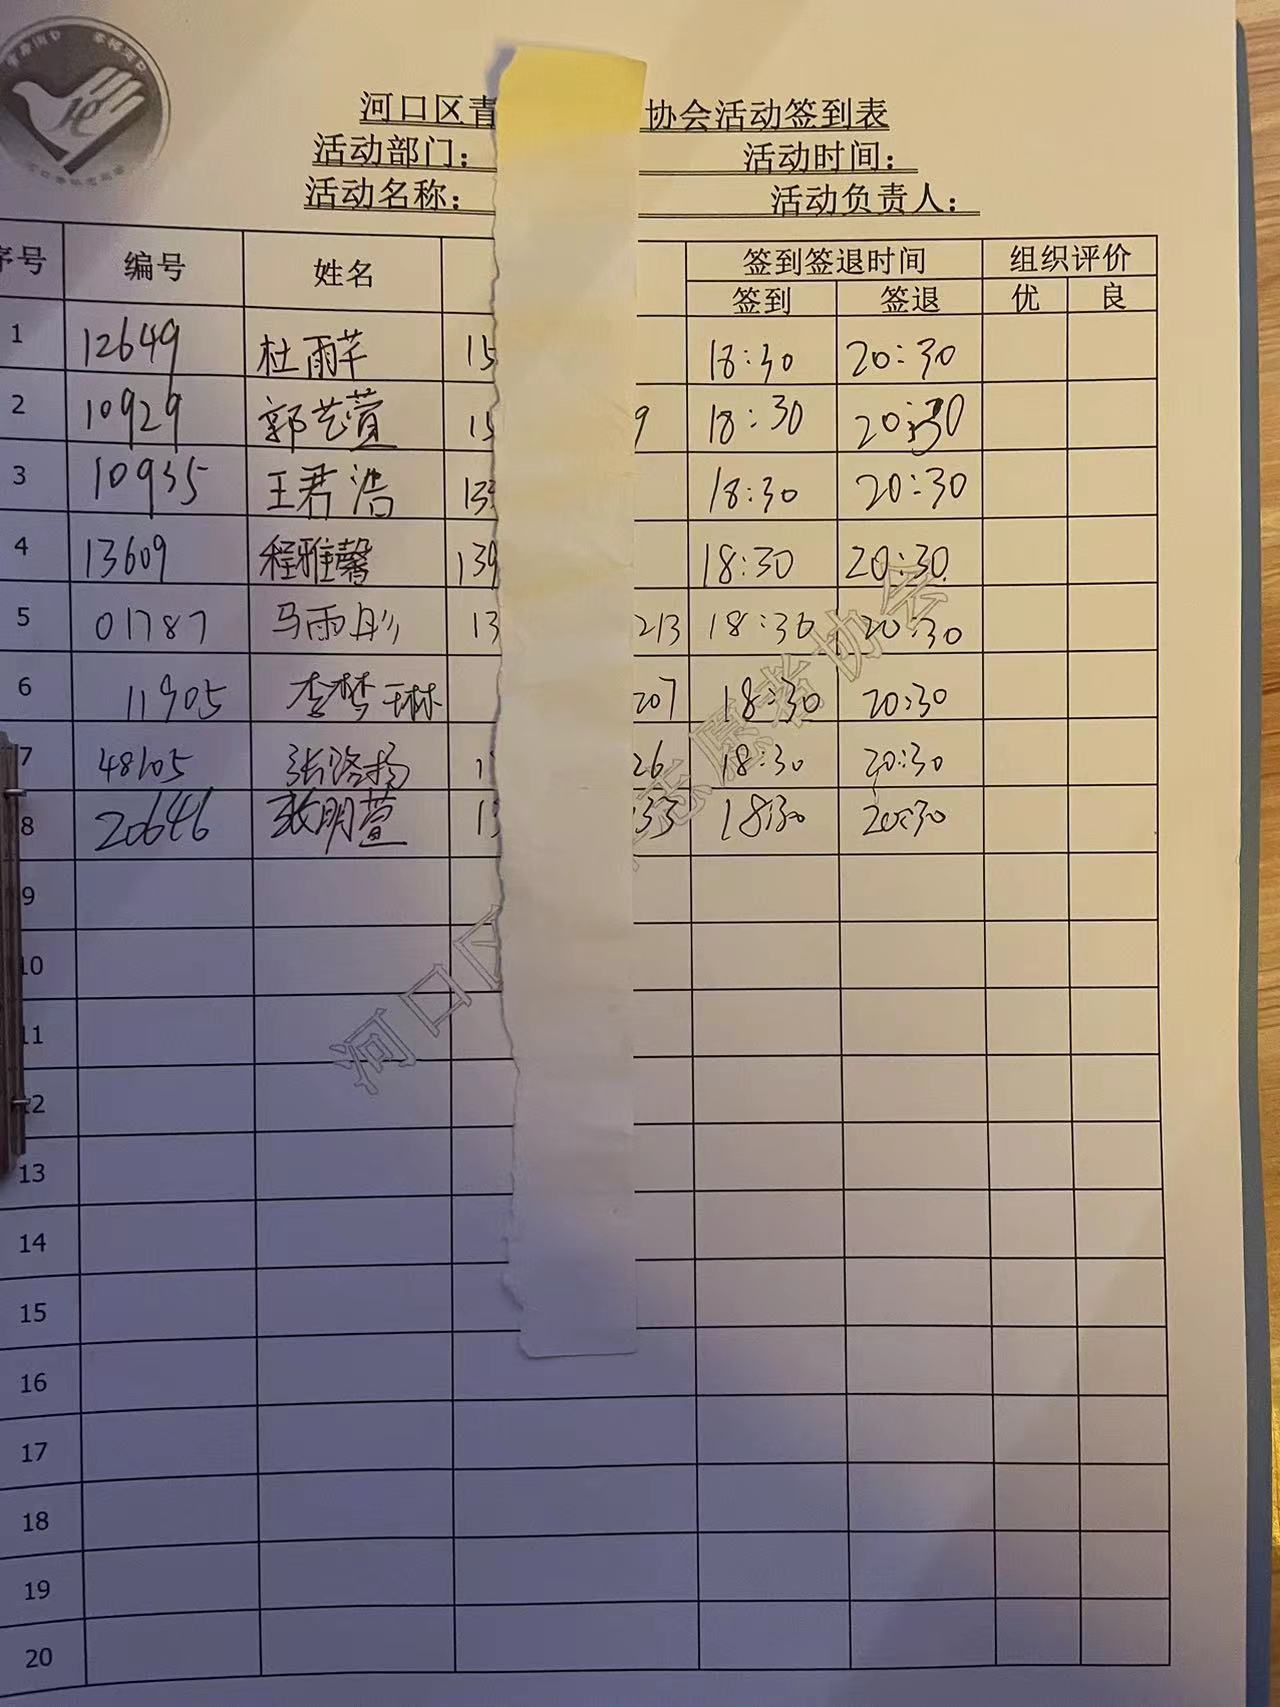 河口区青 协会活动签到表
活动部门： 活动时间：
活动名称： 活动负责人：
序号 编号 姓名 签到签退时间 组织评价
签到 签退 优 良
1 12649 杜雨芊 15 18:30 20:30
2 10929 郭艺萱 15 9 18:30 20:30
3 10935 王君浩 133 18:30 20:30
4 13609 程雅馨 139 18:30 20:30
5 01787 马雨彤 13 213 18:30 20:30
6 11905 李梦琳 207 18:30 20:30
7 48105 张洛扬 1 26 18:30 20:30
8 20646 张明萱 13 33 18:30 20:30
9
10
11
12
13
14
15
16
17
18
19
20
河口区 志愿者协会